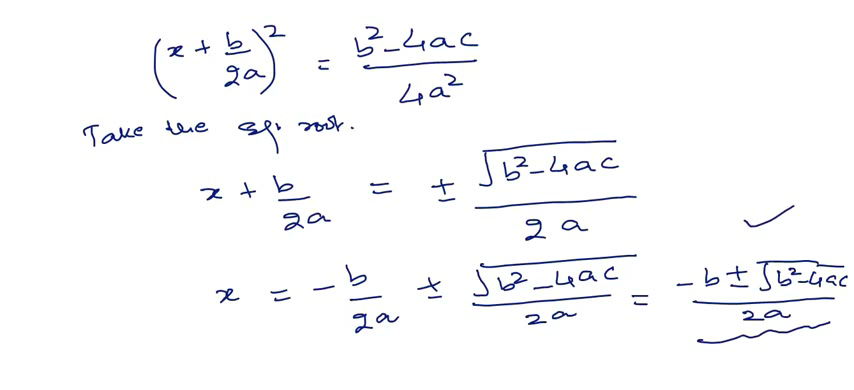 (x + b/2a)² = (b² - 4ac)/4a²
Take the sq. root.
x + b/2a = ± √(b² - 4ac)/2a
x = - b/2a ± √(b² - 4ac)/2a = (-b ± √(b² - 4ac))/2a